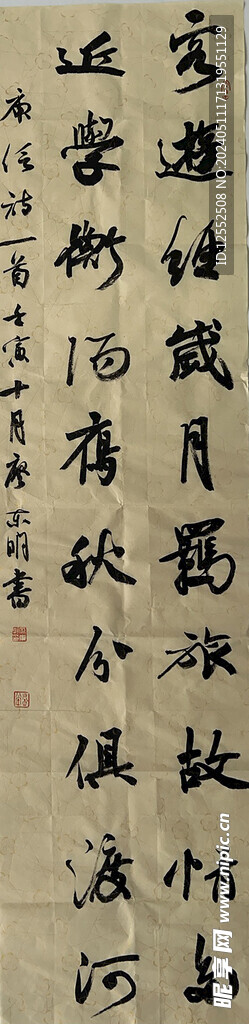 客遊经歲月羈旅故情多
近學衡陽雁秋分俱渡河
庾信诗一首壬寅十月廖东明書
ID:12552508 NO:20240511171319551129
昵享网 www.nipic.cn